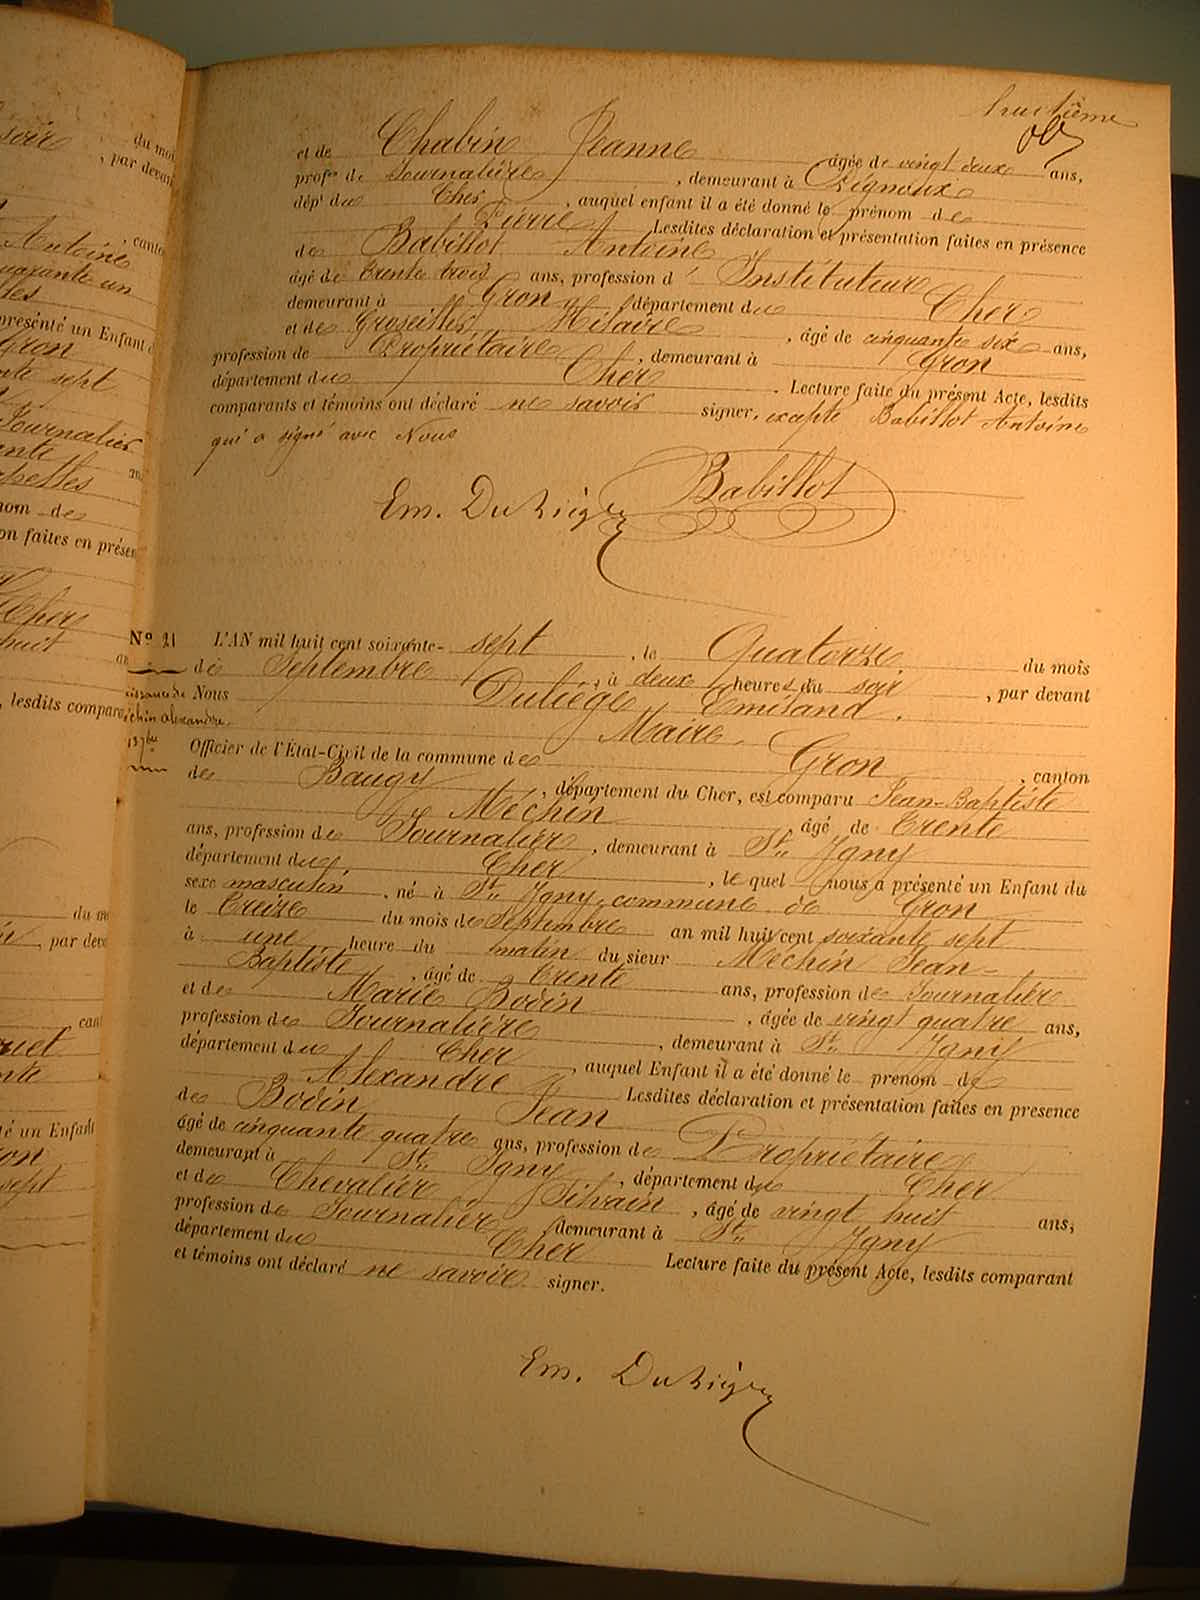 huitième
et de Chabin Jeanne âgée de vingt deux ans,
prof^on de Journalière, demeurant à Vignoux
dép^t du Cher, auquel enfant il a été donné le prénom de
Pierre Lesdites déclaration et présentation faites en présence
de Babillot Antoine
âgé de trente trois ans, profession d' Instituteur
demeurant à Gron département du Cher
et de Groseiller Hilaire, âgé de cinquante six ans,
profession de Propriétaire, demeurant à Gron
département du Cher. Lecture faite du présent Acte, lesdits
comparants et témoins ont déclaré ne savoir signer, excepté Babillot Antoine
qui a signé avec Nous
Em. Duliège Babillot
N° 21 L'AN mil huit cent soixante-sept, le Quatorze du mois
de Septembre, à deux heures du soir, par devant
Nous Duliège Emiland.
Maire.
Officier de l'État-Civil de la commune de Gron, canton
de Baugy, département du Cher, est comparu Jean-Baptiste
Méchin âgé de trente
ans, profession de Journalier, demeurant à St. Igny
département du Cher, le quel nous a présenté un Enfant du
sexe masculin, né à St. Igny, commune de Gron
le treize du mois de Septembre an mil huit cent soixante sept
à une heure du matin du sieur Méchin Jean-
Baptiste, âgé de trente ans, profession de Journalier
et de Marie Bodin, âgée de vingt quatre ans,
profession de Journalière, demeurant à St. Igny
département du Cher, auquel Enfant il a été donné le prenom de
Alexandre Lesdites déclaration et présentation faites en presence
de Bodin Jean
âgé de cinquante quatre ans, profession de Propriétaire
demeurant à St. Igny, département du Cher
et de Chevalier Silvain, âgé de vingt huit ans,
profession de Journalier demeurant à St. Igny
département du Cher Lecture faite du présent Acte, lesdits comparant
et témoins ont déclaré ne savoir signer.
Em. Duliège